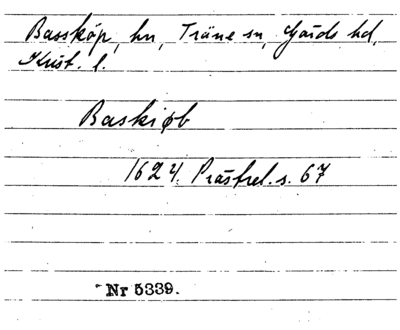 Bassköp, hn, Träne sn, Gärds hd,
Krist. l.
Baskiøb
1624. Prästrel. s. 67
Nr 5339.